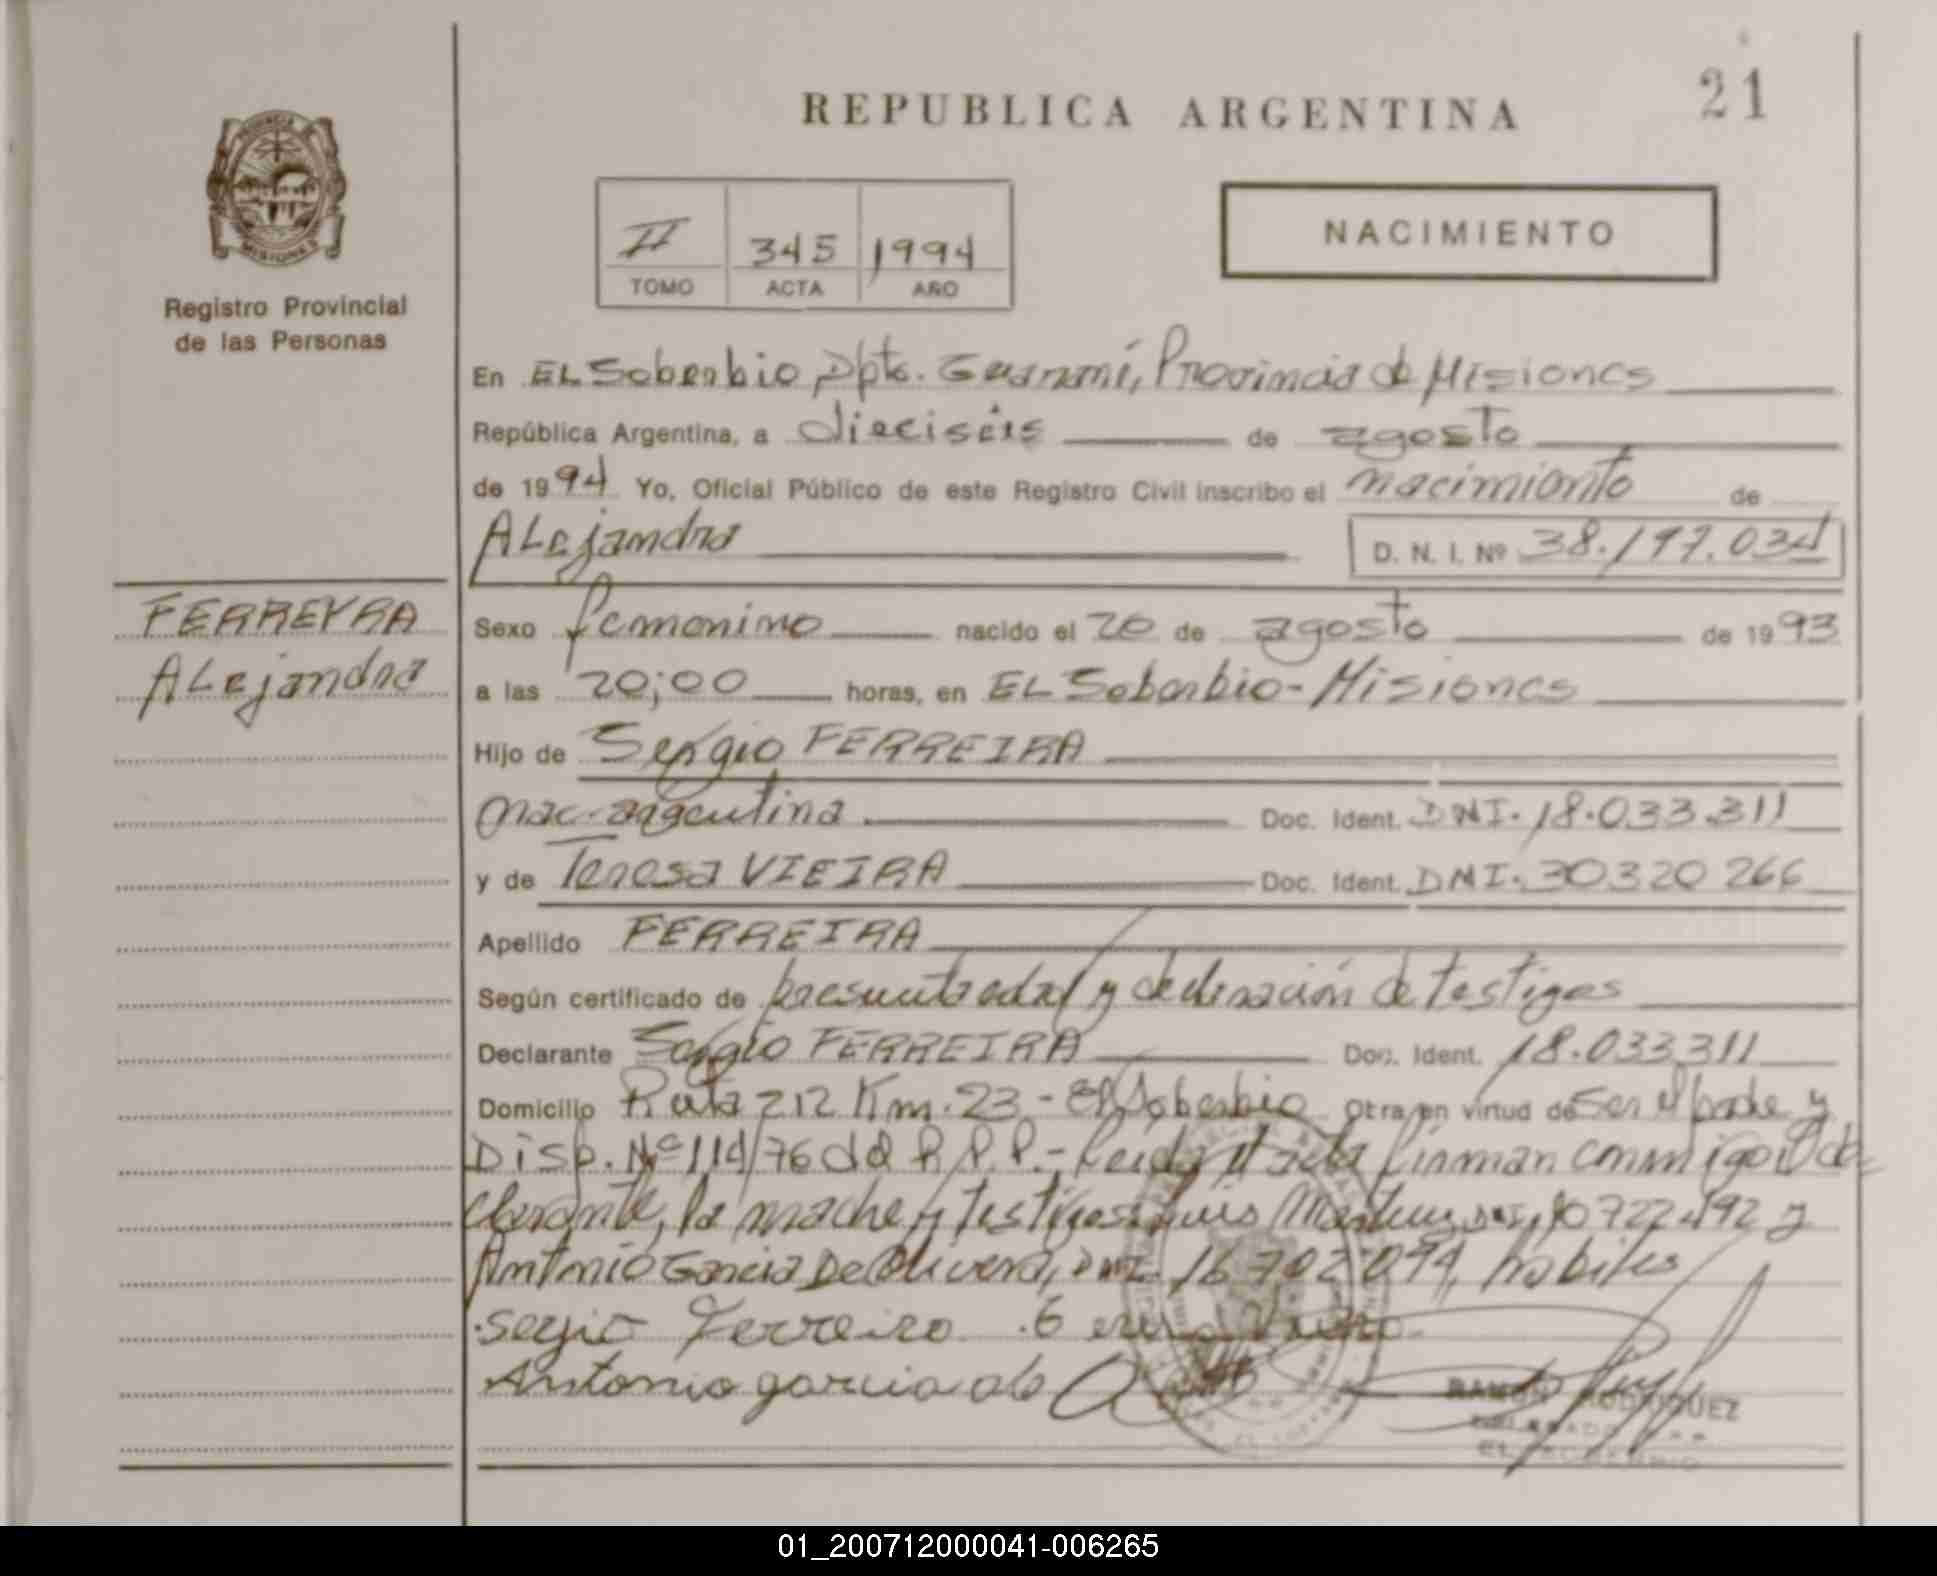 21
REPUBLICA ARGENTINA
PROVINCIA DE
MISIONES
Registro Provincial
de las Personas
II 345 1994
TOMO ACTA AÑO
NACIMIENTO
En EL Soberbio, Dpto. Guaraní, Provincia de Misiones
República Argentina, a dieciséis de agosto
de 1994 Yo, Oficial Público de este Registro Civil inscribo el nacimiento de
Alejandra D. N. I. Nº 38.197.034
FERREYRA
Alejandra
Sexo femenino nacido el 20 de agosto de 1993
a las 20;00 horas, en EL Soberbio - Misiones
Hijo de Sergio FERREIRA
nac. argentina Doc. Ident. DNI. 18.033.311
y de Teresa VIEIRA Doc. Ident. DNI. 30320266
Apellido FERREIRA
Según certificado de presunta edad y declaración de testigos
Declarante Sergio FERREIRA Doc. Ident. 18.033311
Domicilio Ruta 212 Km. 23 - El Soberbio Otra en virtud de ser el padre y
Disp. Nº 114/76 del R.P.P. - Leída el acta firman conmigo el de
clarante, la madre y testigos: Luis DNI. 10722492 y
Antonio Garcia De Olivera, DNI. 16702094, habiles
Sergio Ferreiro
Antonio garcia de O
RAMON RODRIGUEZ
DELEGADO
EL SOBERBIO
01_200712000041-006265